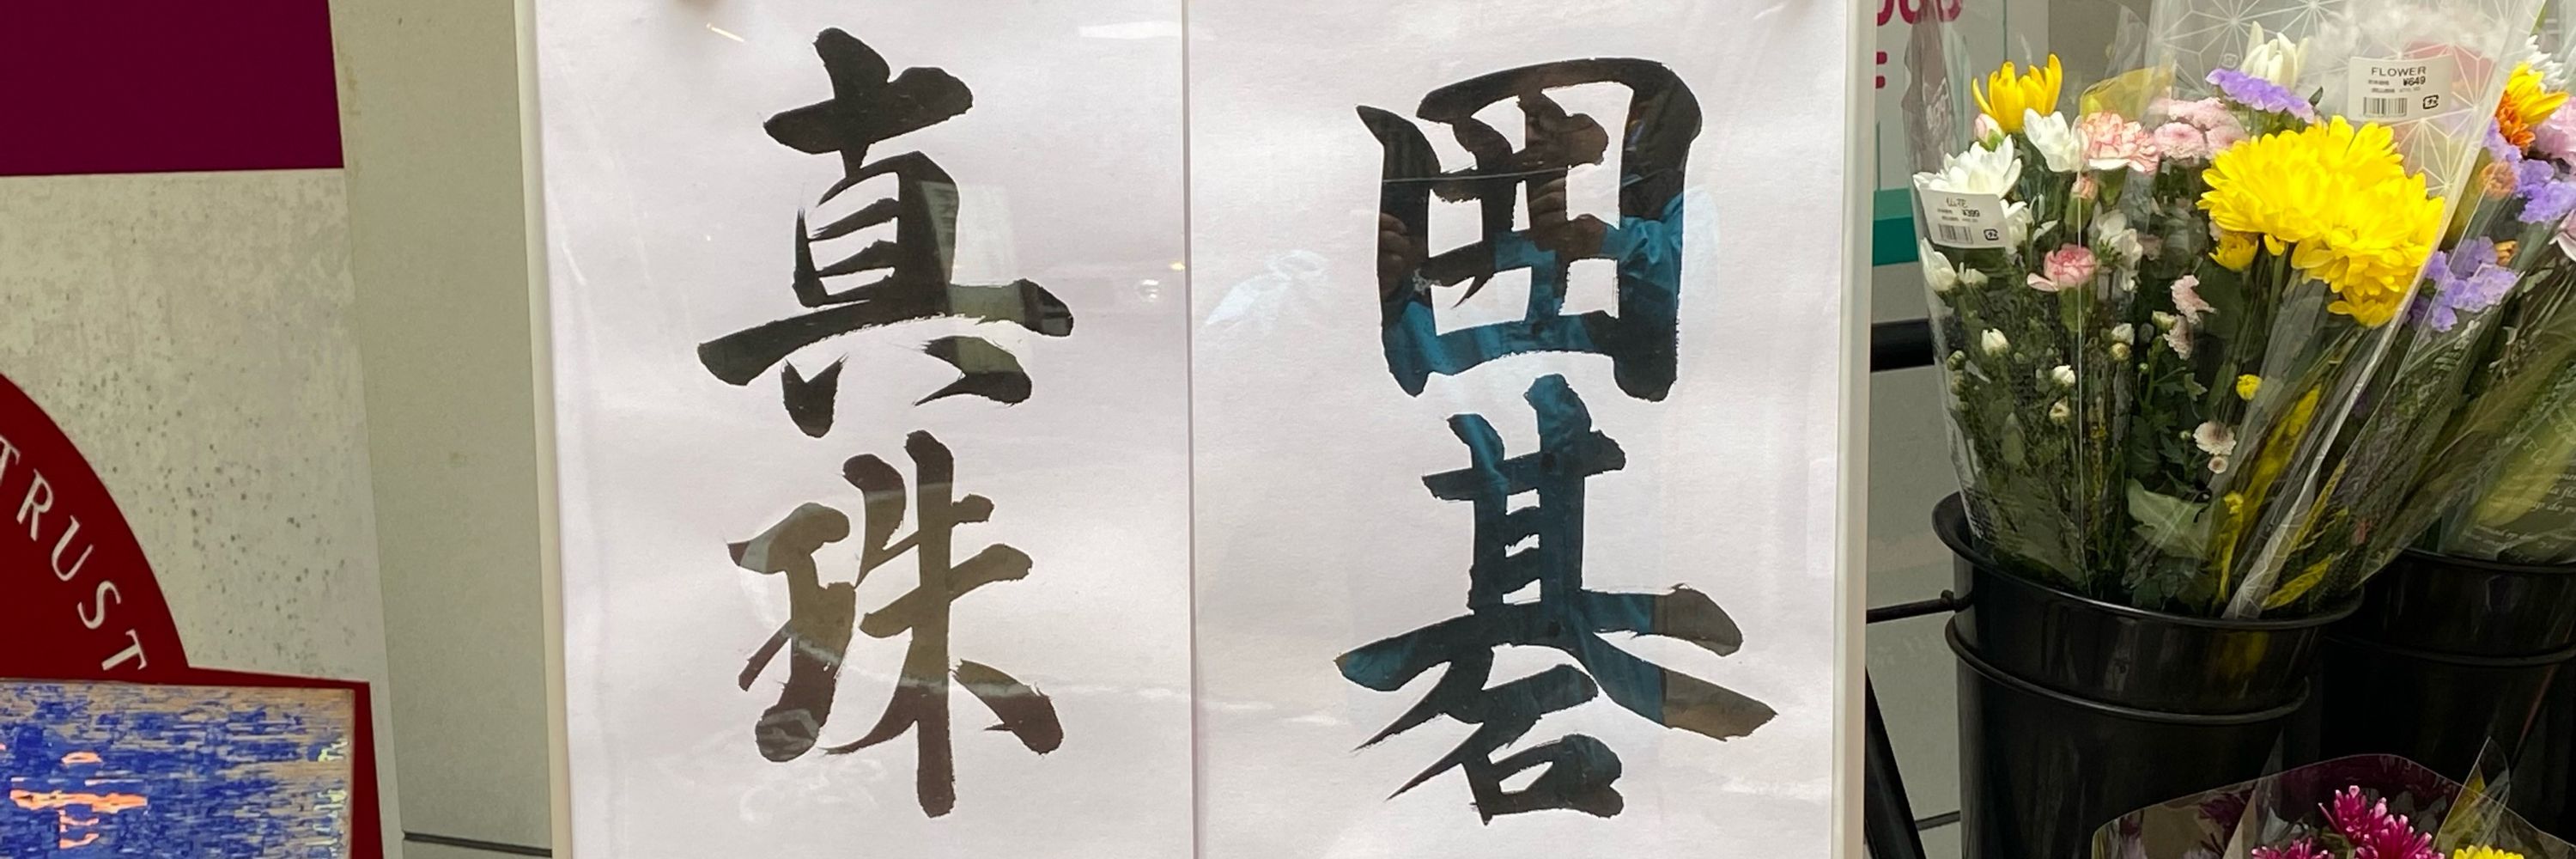 囲碁
真珠
TRUST
FLOWER
¥649
仏花
¥399